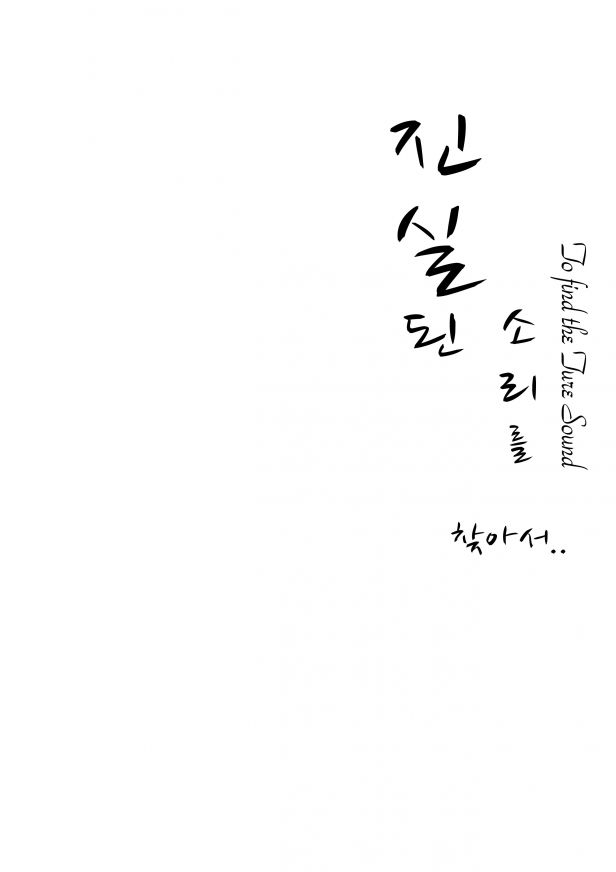 진실된
소리를
찾아서..
To find the Ture Sound